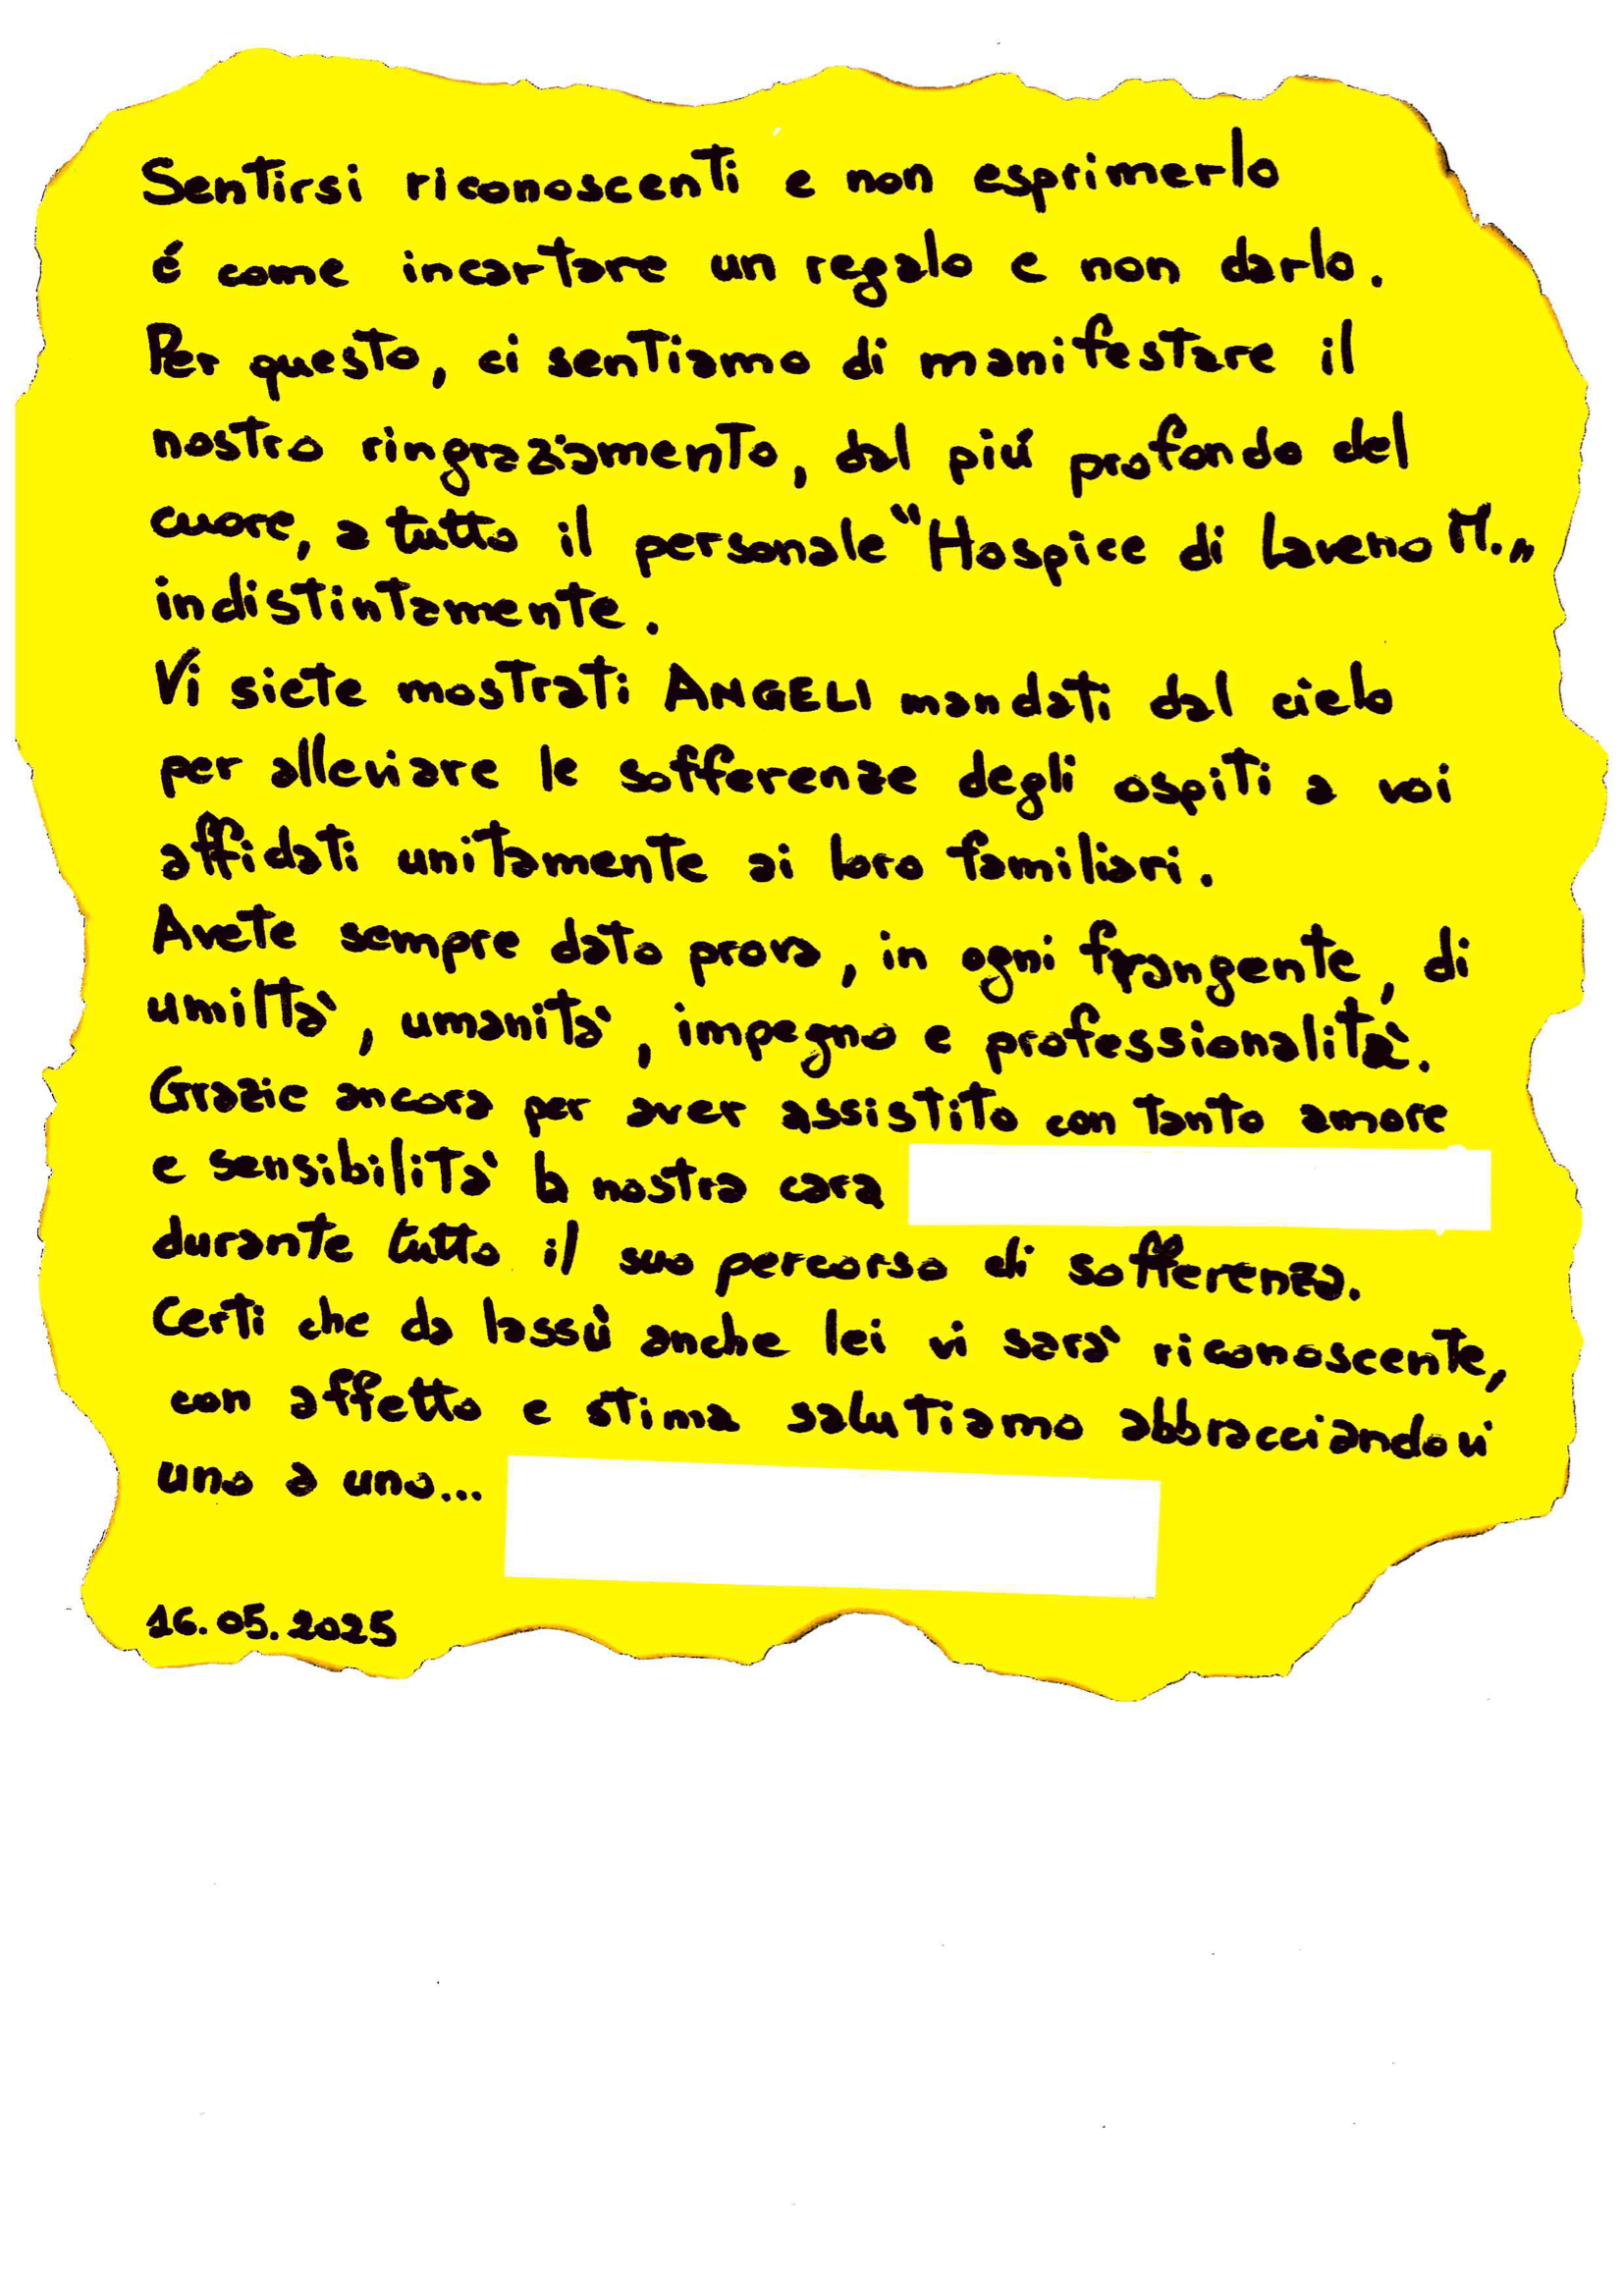 Sentirsi riconoscenti e non esprimerlo
é come incartare un regalo e non darlo.
Per questo, ci sentiamo di manifestare il
nostro ringraziamento, dal piú profondo del
cuore, a tutto il personale "Hospice di Laveno M."
indistintamente.
Vi siete mostrati ANGELI mandati dal cielo
per alleviare le sofferenze degli ospiti a voi
affidati unitamente ai loro familiari.
Avete sempre dato prova, in ogni frangente, di
umiltà, umanità, impegno e professionalità.
Grazie ancora per aver assistito con tanto amore
e sensibilità la nostra cara
durante tutto il suo percorso di sofferenza.
Certi che da lassù anche lei vi sarà riconoscente,
con affetto e stima salutiamo abbracciandovi
uno a uno...
16.05.2025